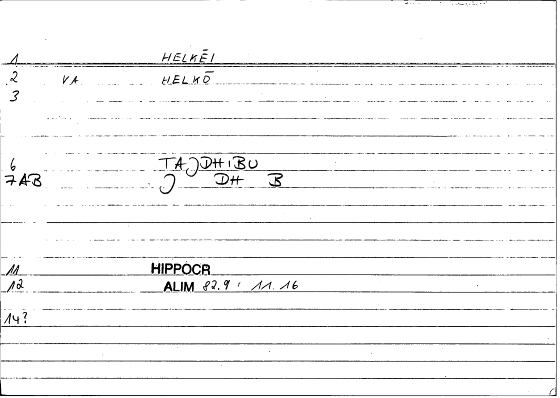 1 HELKĒI
2 VA HELKŌ
3
6 TAJDHIBU
7AB J DH B
11 HIPPOCR
12 ALIM 82.9, 11.16
14?